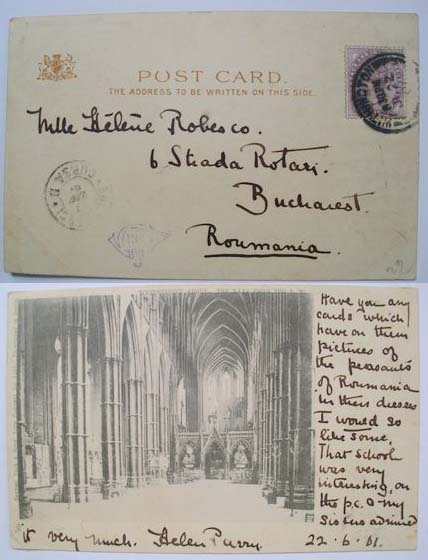 POST CARD.
THE ADDRESS TO BE WRITTEN ON THIS SIDE.
Mlle Hélène Robesco.
6 Strada Rotari.
Bucharest.
Roumania.
WESTMINSTER ABBEY. THE NAVE FROM THE
Have you any
cards which
have on them
pictures of
the peasants
of Roumania
in their dresses
I would so
like some.
That School
was very
interesting, on
the p.c. & my
Sisters admired
it very much. Helen Purvy. 22.6.01.